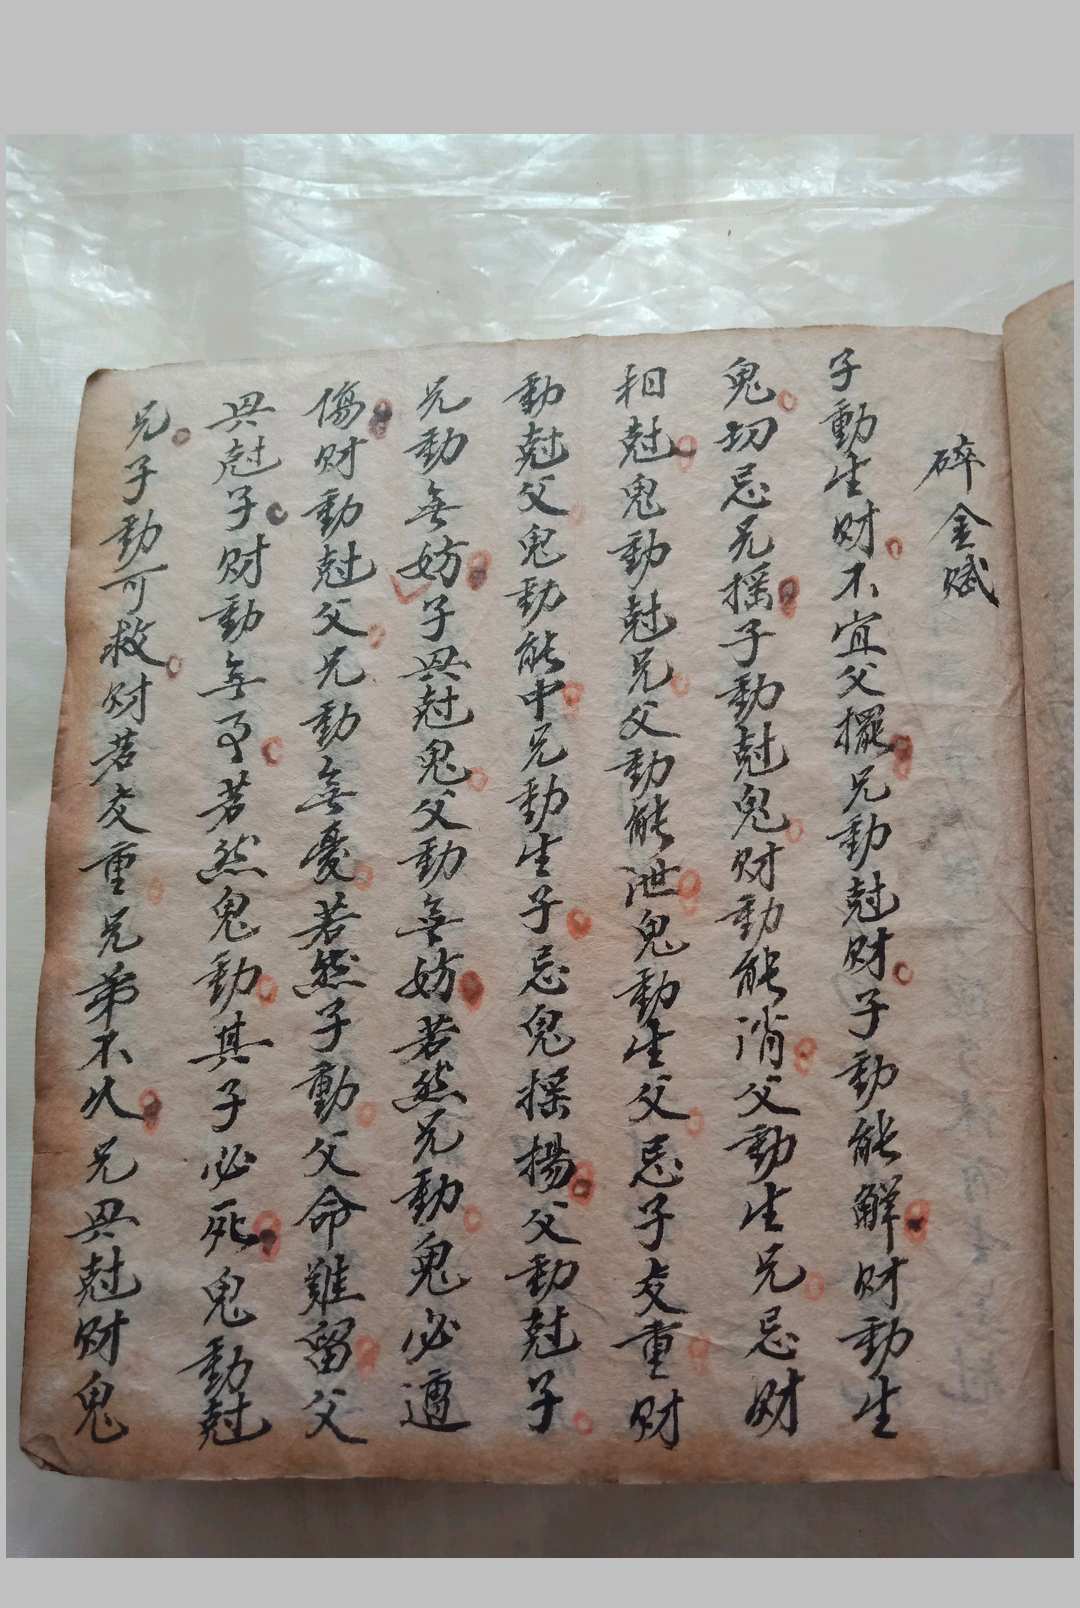 碎金赋
子動生财不宜父擺兄動尅财子動能解财動生
鬼切忌兄摇子動尅鬼财動能消父動生兄忌财
相尅鬼動尅兄父動能泄鬼動生父忌子交重财
動尅父鬼動能中兄動生子忌鬼摇揚父動尅子
兄動無妨子與尅鬼父動無妨若然兄動鬼必遭
傷财動尅父兄動無憂若然子動父命難留父
與尅子财動無事若然鬼動其子必死鬼動尅
兄子動可救财若交重兄弟不久兄與尅财鬼